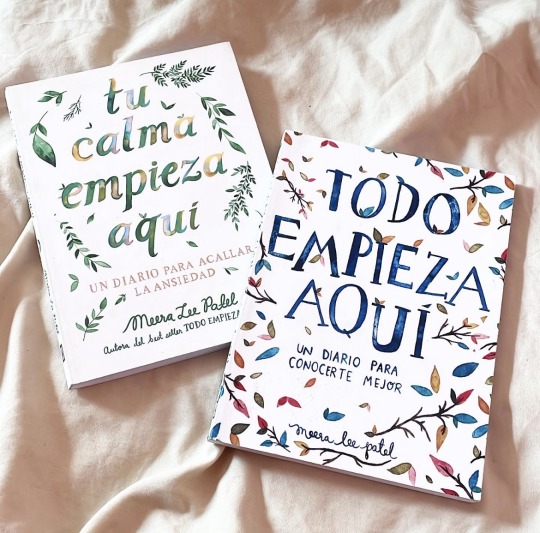 tu
calma
empieza
aquí
UN DIARIO PARA ACALLAR
LA ANSIEDAD
Meera Lee Patel
Autora del best seller TODO EMPIEZA
TODO
EMPIEZA
AQUÍ
UN DIARIO PARA
CONOCERTE MEJOR
meera lee patel